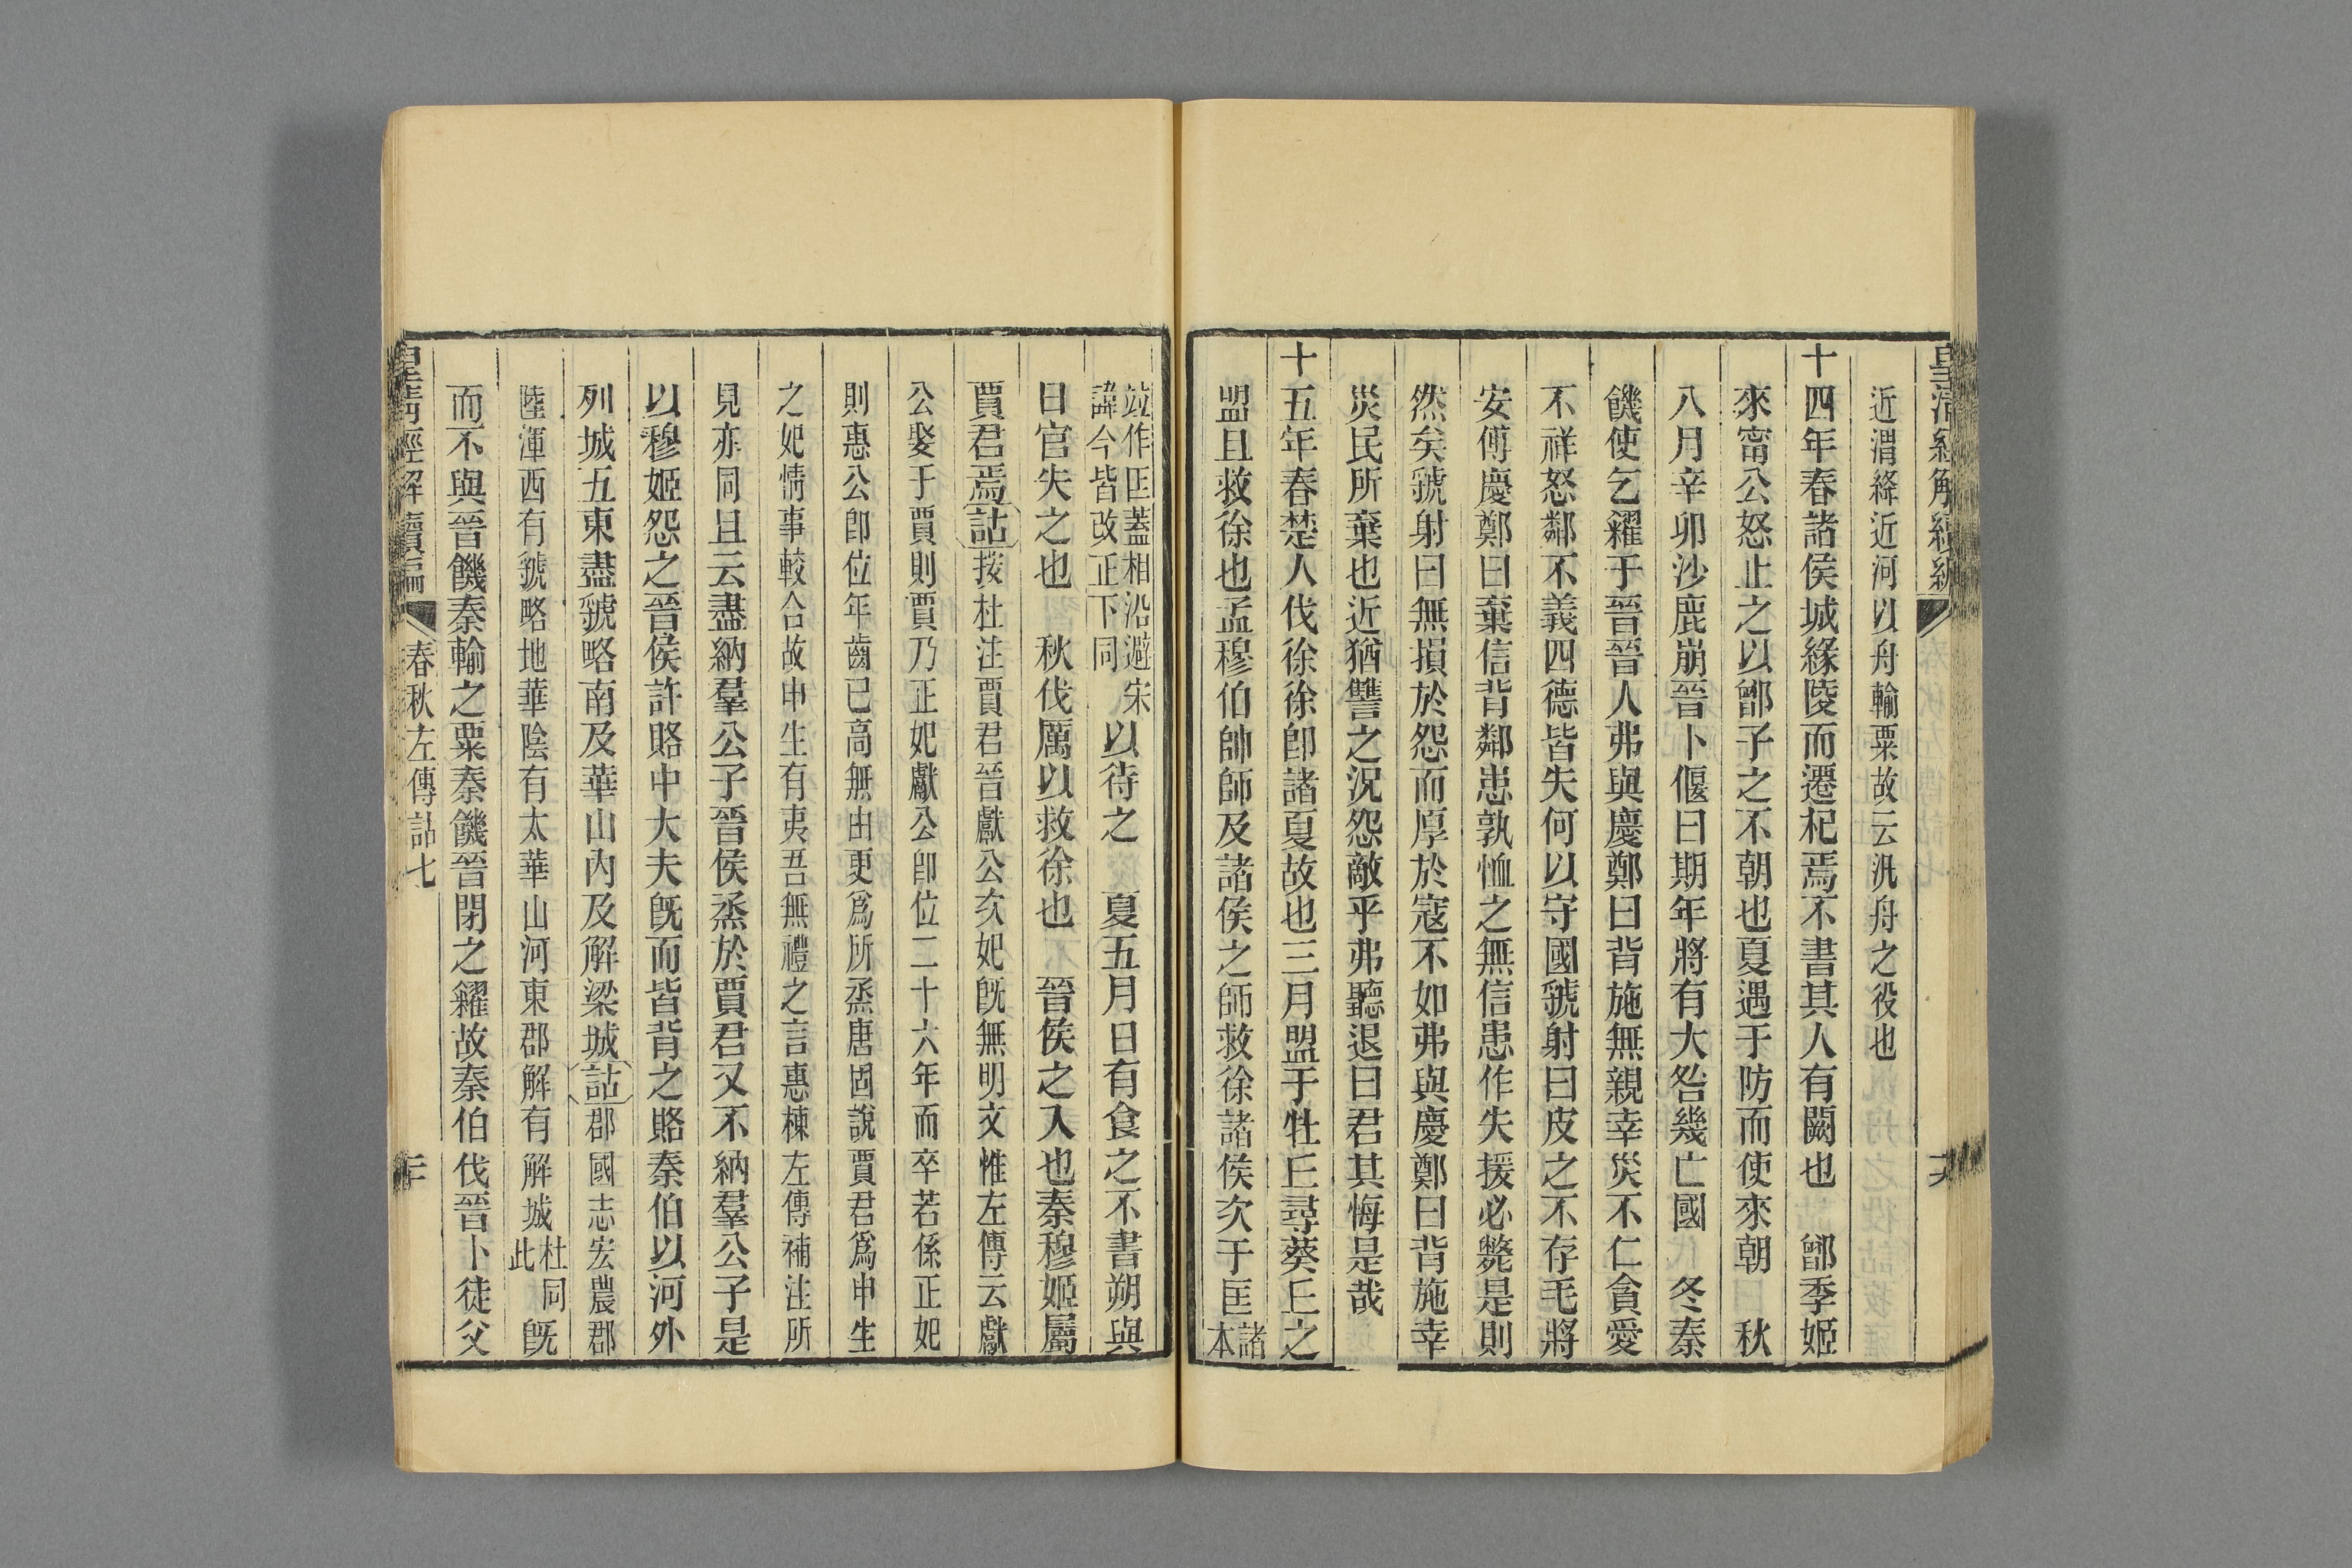 皇清經解續編
近渭絳近河以舟輸粟故云汎舟之役也
十四年春諸侯城緣陵而遷杞焉不書其人有闕也　鄫季姬
來甯公怒止之以鄫子之不朝也夏遇于防而使來朝　秋
八月辛卯沙鹿崩晉卜偃曰期年將有大咎幾亡國　冬秦
饑使乞糴于晉晉人弗與慶鄭曰背施無親幸災不仁貪愛
不祥怒鄰不義四德皆失何以守國虢射曰皮之不存毛將
安傅慶鄭曰棄信背鄰患孰恤之無信患作失援必斃是則
然矣虢射曰無損於怨而厚於寇不如弗與慶鄭曰背施幸
災民所棄也近猶讐之況怨敵乎弗聽退曰君其悔是哉
十五年春楚人伐徐徐卽諸夏故也三月盟于牡丘尋葵丘之
盟且救徐也孟穆伯帥師及諸侯之師救徐諸侯次于匡諸本
竝作匡蓋相沿避宋諱今皆改正下同以待之　夏五月日有食之不書朔與
日官失之也　秋伐厲以救徐也　晉侯之入也秦穆姬屬
賈君焉詁按杜注賈君晉獻公次妃旣無明文惟左傳云獻
公娶于賈則賈乃正妃獻公卽位二十六年而卒若係正妃
則惠公卽位年齒已高無由更爲所烝唐固說賈君爲申生
之妃情事較合故申生有夷吾無禮之言惠棟左傳補注所
見亦同且云盡納羣公子晉侯烝於賈君又不納羣公子是
以穆姬怨之晉侯許賂中大夫旣而皆背之賂秦伯以河外
列城五東盡虢略南及華山內及解梁城詁郡國志宏農郡
陸渾西有虢略地華陰有太華山河東郡解有解城杜同此旣
而不與晉饑秦輸之粟秦饑晉閉之糴故秦伯伐晉卜徒父
皇清經解續編　春秋左傳詁七　二十